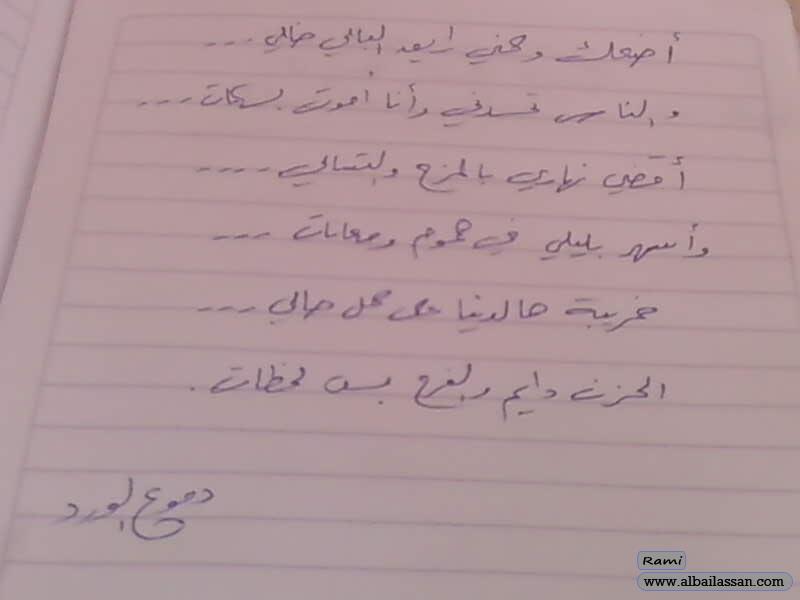 أضحك وهمي رايعد البالي خالي ...
والناس تحسدني وأنا أموت بسكات ...
أقضي نهاري بالمزح والتسالي ....
وأسهر بليلي في هموم ومعانات ...
غريبة هالدنيا على كل حالي ...
الحزن دايم والفرح بس لحظات .
دموع الورد
Rami
www.albailassan.com